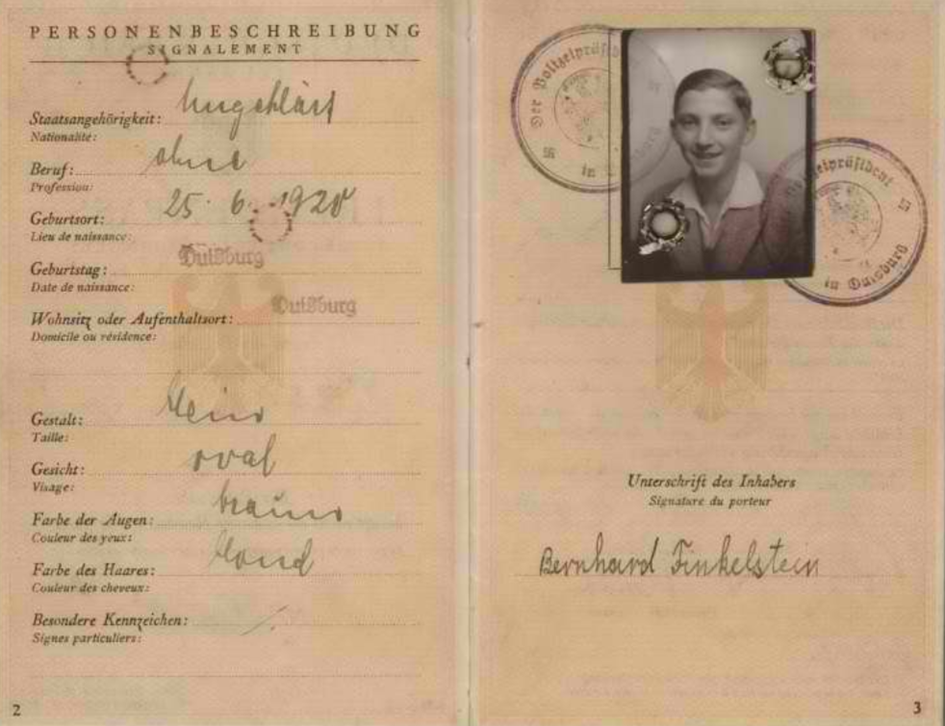 PERSONENBESCHREIBUNG
SIGNALEMENT
Staatsangehörigkeit: Ungeklärt
Nationalité:
Beruf: ohne
Profession:
Geburtsort: 25. 6. 1920
Lieu de naissance:
Geburtstag: Duisburg
Date de naissance:
Wohnsitz oder Aufenthaltsort: Duisburg
Domicile ou résidence:
Gestalt: klein
Taille:
Gesicht: oval
Visage:
Farbe der Augen: braun
Couleur des yeux:
Farbe des Haares: blond
Couleur des cheveux:
Besondere Kennzeichen: /.
Signes particuliers:
2
Der Polizeipräsid
in
Polizeipräsident
in Duisburg
Unterschrift des Inhabers
Signature du porteur
Bernhard Finkelstein
3